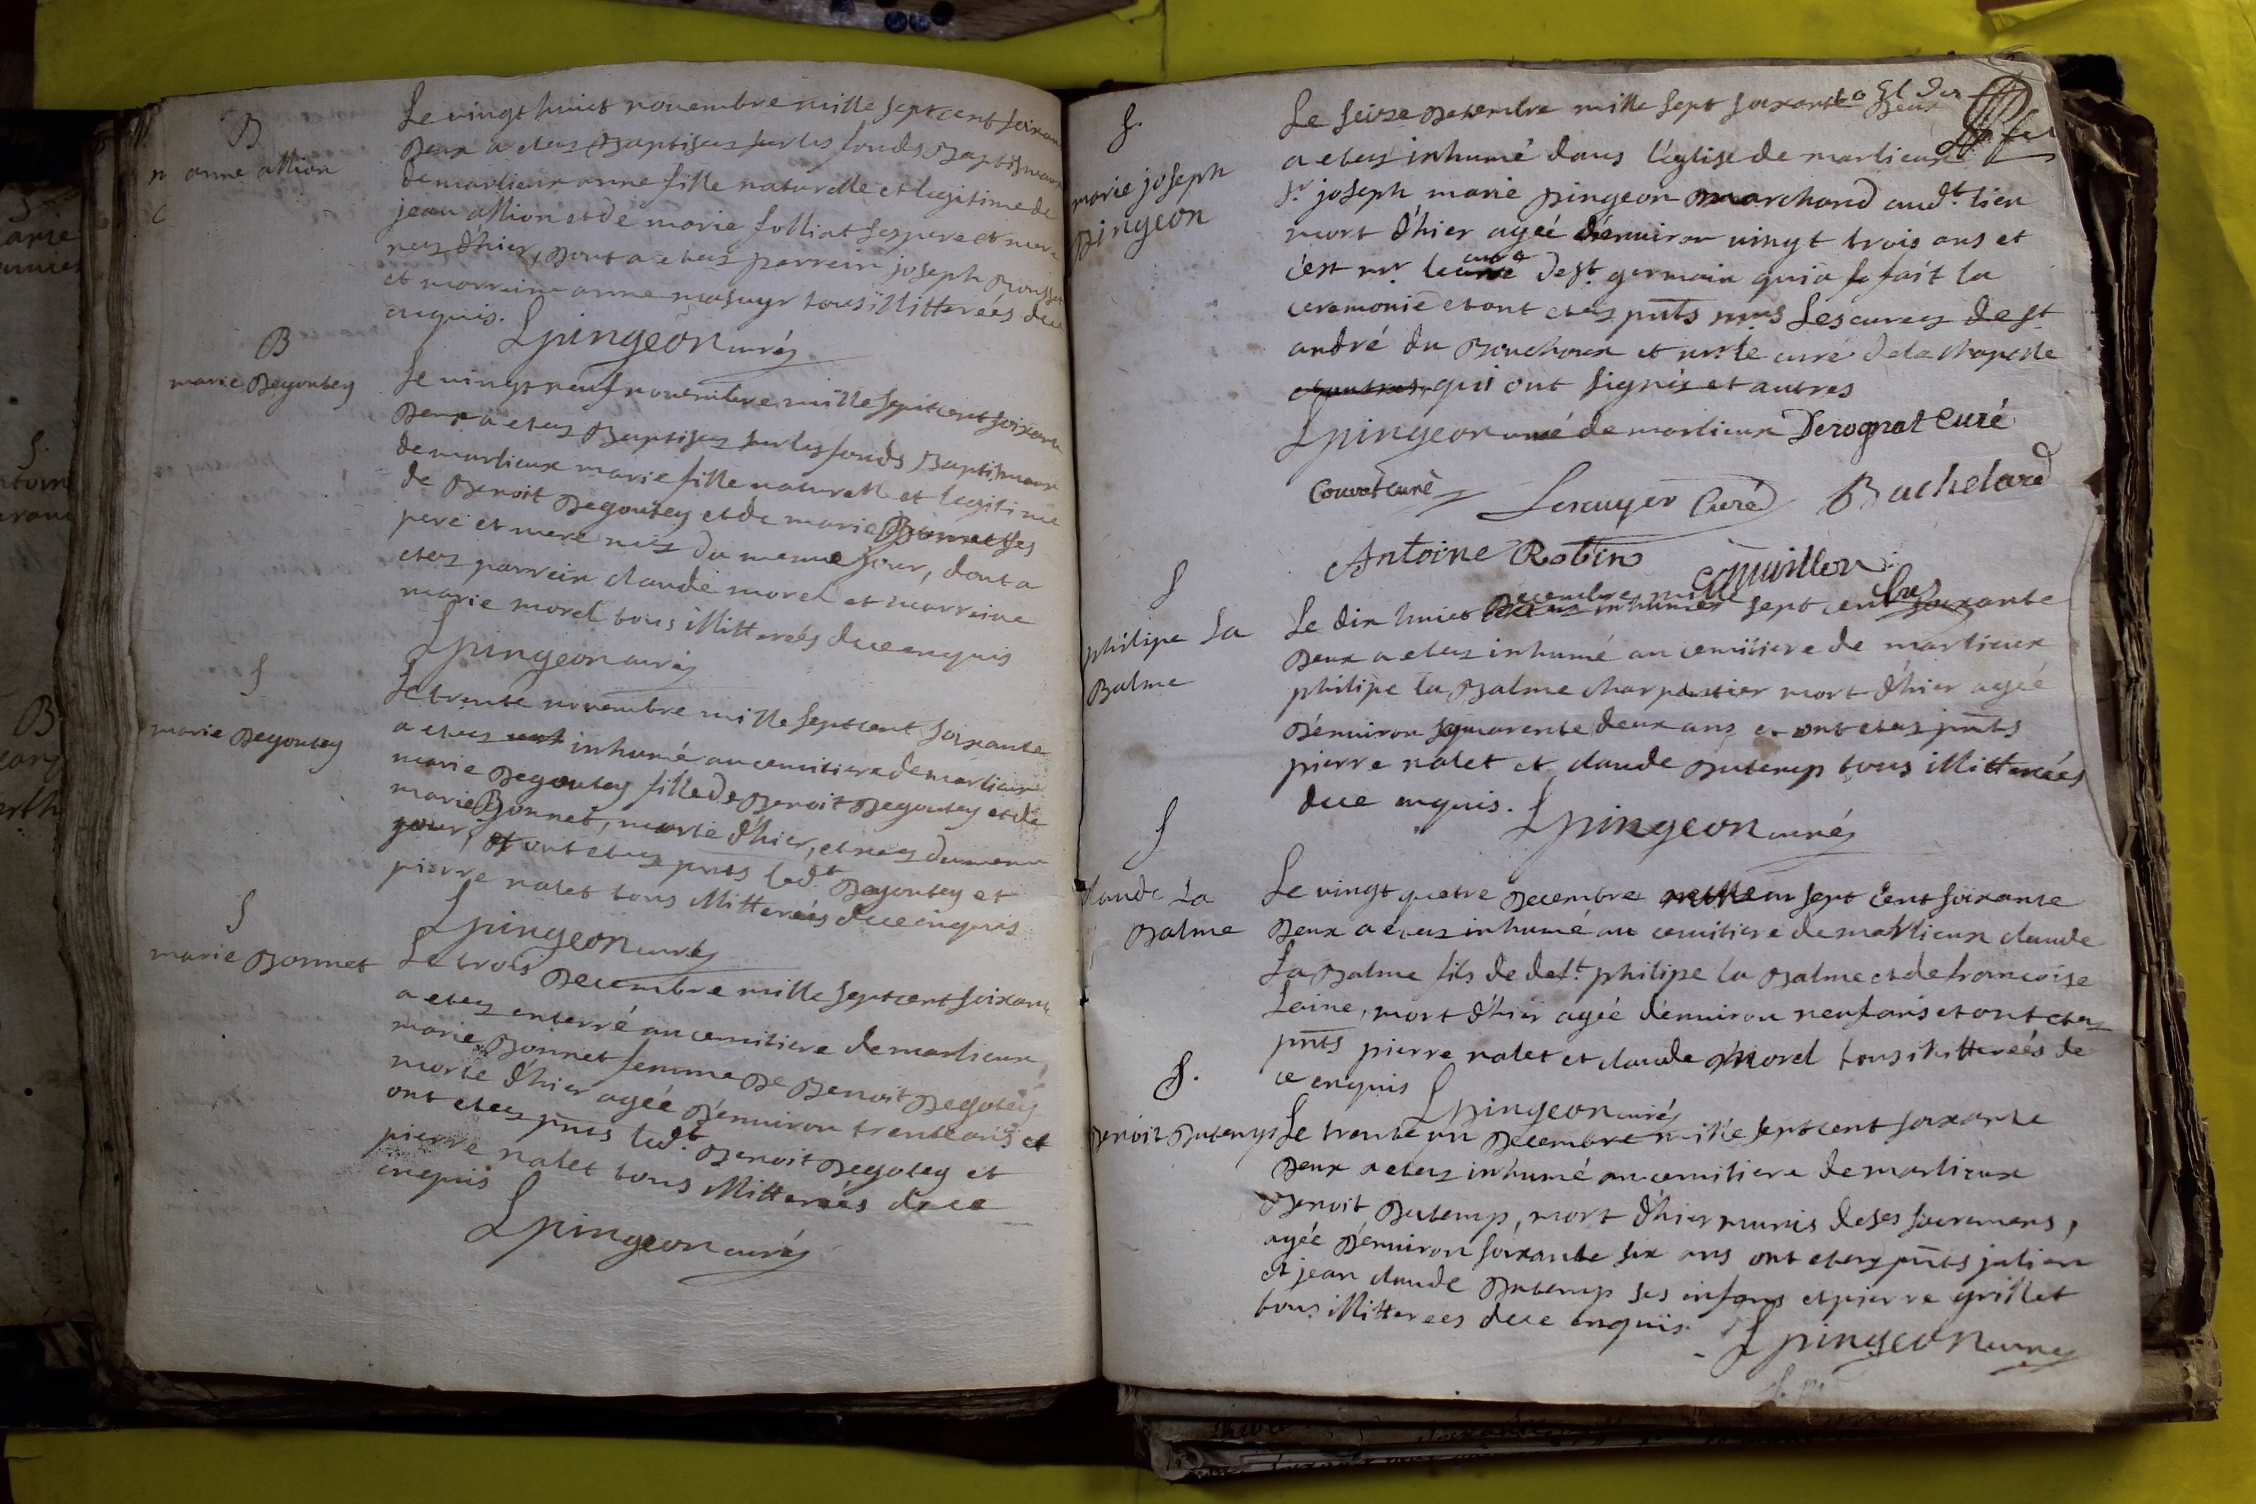 B
anne allion
Le vingt huict novembre mille sept cent soixan
Deux a etez Baptisez sur les fonds Baptismaux
de marlieux anne fille naturelle et legitime de
jean allion et de marie folliat ses pere et mere
nez d'hier, dont a etez parrein joseph Rousset
et marreine anne masuyr tous illitterées de ce
enquis. Lpingeon curéz
B
marie Degoutey
Le vingt neuf novembre mille sept cent soixan
Deux a etez Baptisez sur les fonds Baptismaux
de marlieux marie fille naturell et legitime
de Benoit Degoutey et de marie Bonnet ses
pere et mere nez du meme jour, dont a
etez parrein claude morel et marreine
marie morel tous illitterées de ce enquis
Lpingeon curéz
S
marie Degoutey
Le trente novembre mille sept cent soixante
a etez inhumé au cemitiere de marlieux
marie Degoutey fille de Benoit Degoutey et de
marie Bonnet, morte d'hier, et nez du meme
jour, et ont etez pnts led.t Degoutey et
pierre nalet tous illitterées de ce enquis
Lpingeon curéz
S
marie Bonnet
Le trois Decembre mille sept cent soixan
a etez enterré au cemitiere de marlieux,
marie Bonnet femme de Benoit Degotey
morte d'hier agéé d'énuiron trente ans et
ont etez pnts led.t Benoit Degotey et
pierre nalet tous illitterées de ce
enquis
Lpingeon curéz
S.
marie joseph
pingeon
Le seize Decembre mille sept soixante Deux
a etez inhumé dans l'église de marlieux
s.r joseph marie pingeon marchand aud.t lieu
mort d'hier agéé d'énuiron vingt trois ans et
c'est mr le curé de st. germain qui a fait la
ceremonie et ont etez pnts mrs Les curez de st
andré du Bouchoux et mr le curé de la chapelle
et autres qui ont signéz et autres
Lpingeon curé de marlieux Derognat Curé
Couvat curé Lescuyer Curé Bachelard
Antoine Robin
S
philipe La
Balme
Le dix huict decembre mille sept cent soixante
Deux a etez inhumé au cemitiere de marlieux
philipe la Balme charpentier mort d'hier agéé
d'énuiron quarente deux ans et ont etez pnts
pierre nalet et claude Dutemp tous illitterées
de ce enquis. Lpingeon curéz
S
claude La
Balme
Le vingt quatre Decembre mille sept cent soixante
Deux a etez inhumé au cemitiere de marlieux claude
La Balme fils de deft. philipe la Balme et de francoise
Laine, mort d'hier agéé d'énuiron neuf ans et ont etez
pnts pierre nalet et claude Morel tous illitterées de
ce enquis Lpingeon curéz
S.
Benoit Dutemps
Le trente un Decembre mille sept cent soixante
Deux a etez inhumé au cemitiere de marlieux
Benoit Dutemp, mort d'hier munis de ses sacremens,
agéé d'énuiron soixante six ans ont etez pnts julien
et jean claude Dutemp ses enfans et pierre grillet
tous illitterees de ce enquis. Lpingeon curéz